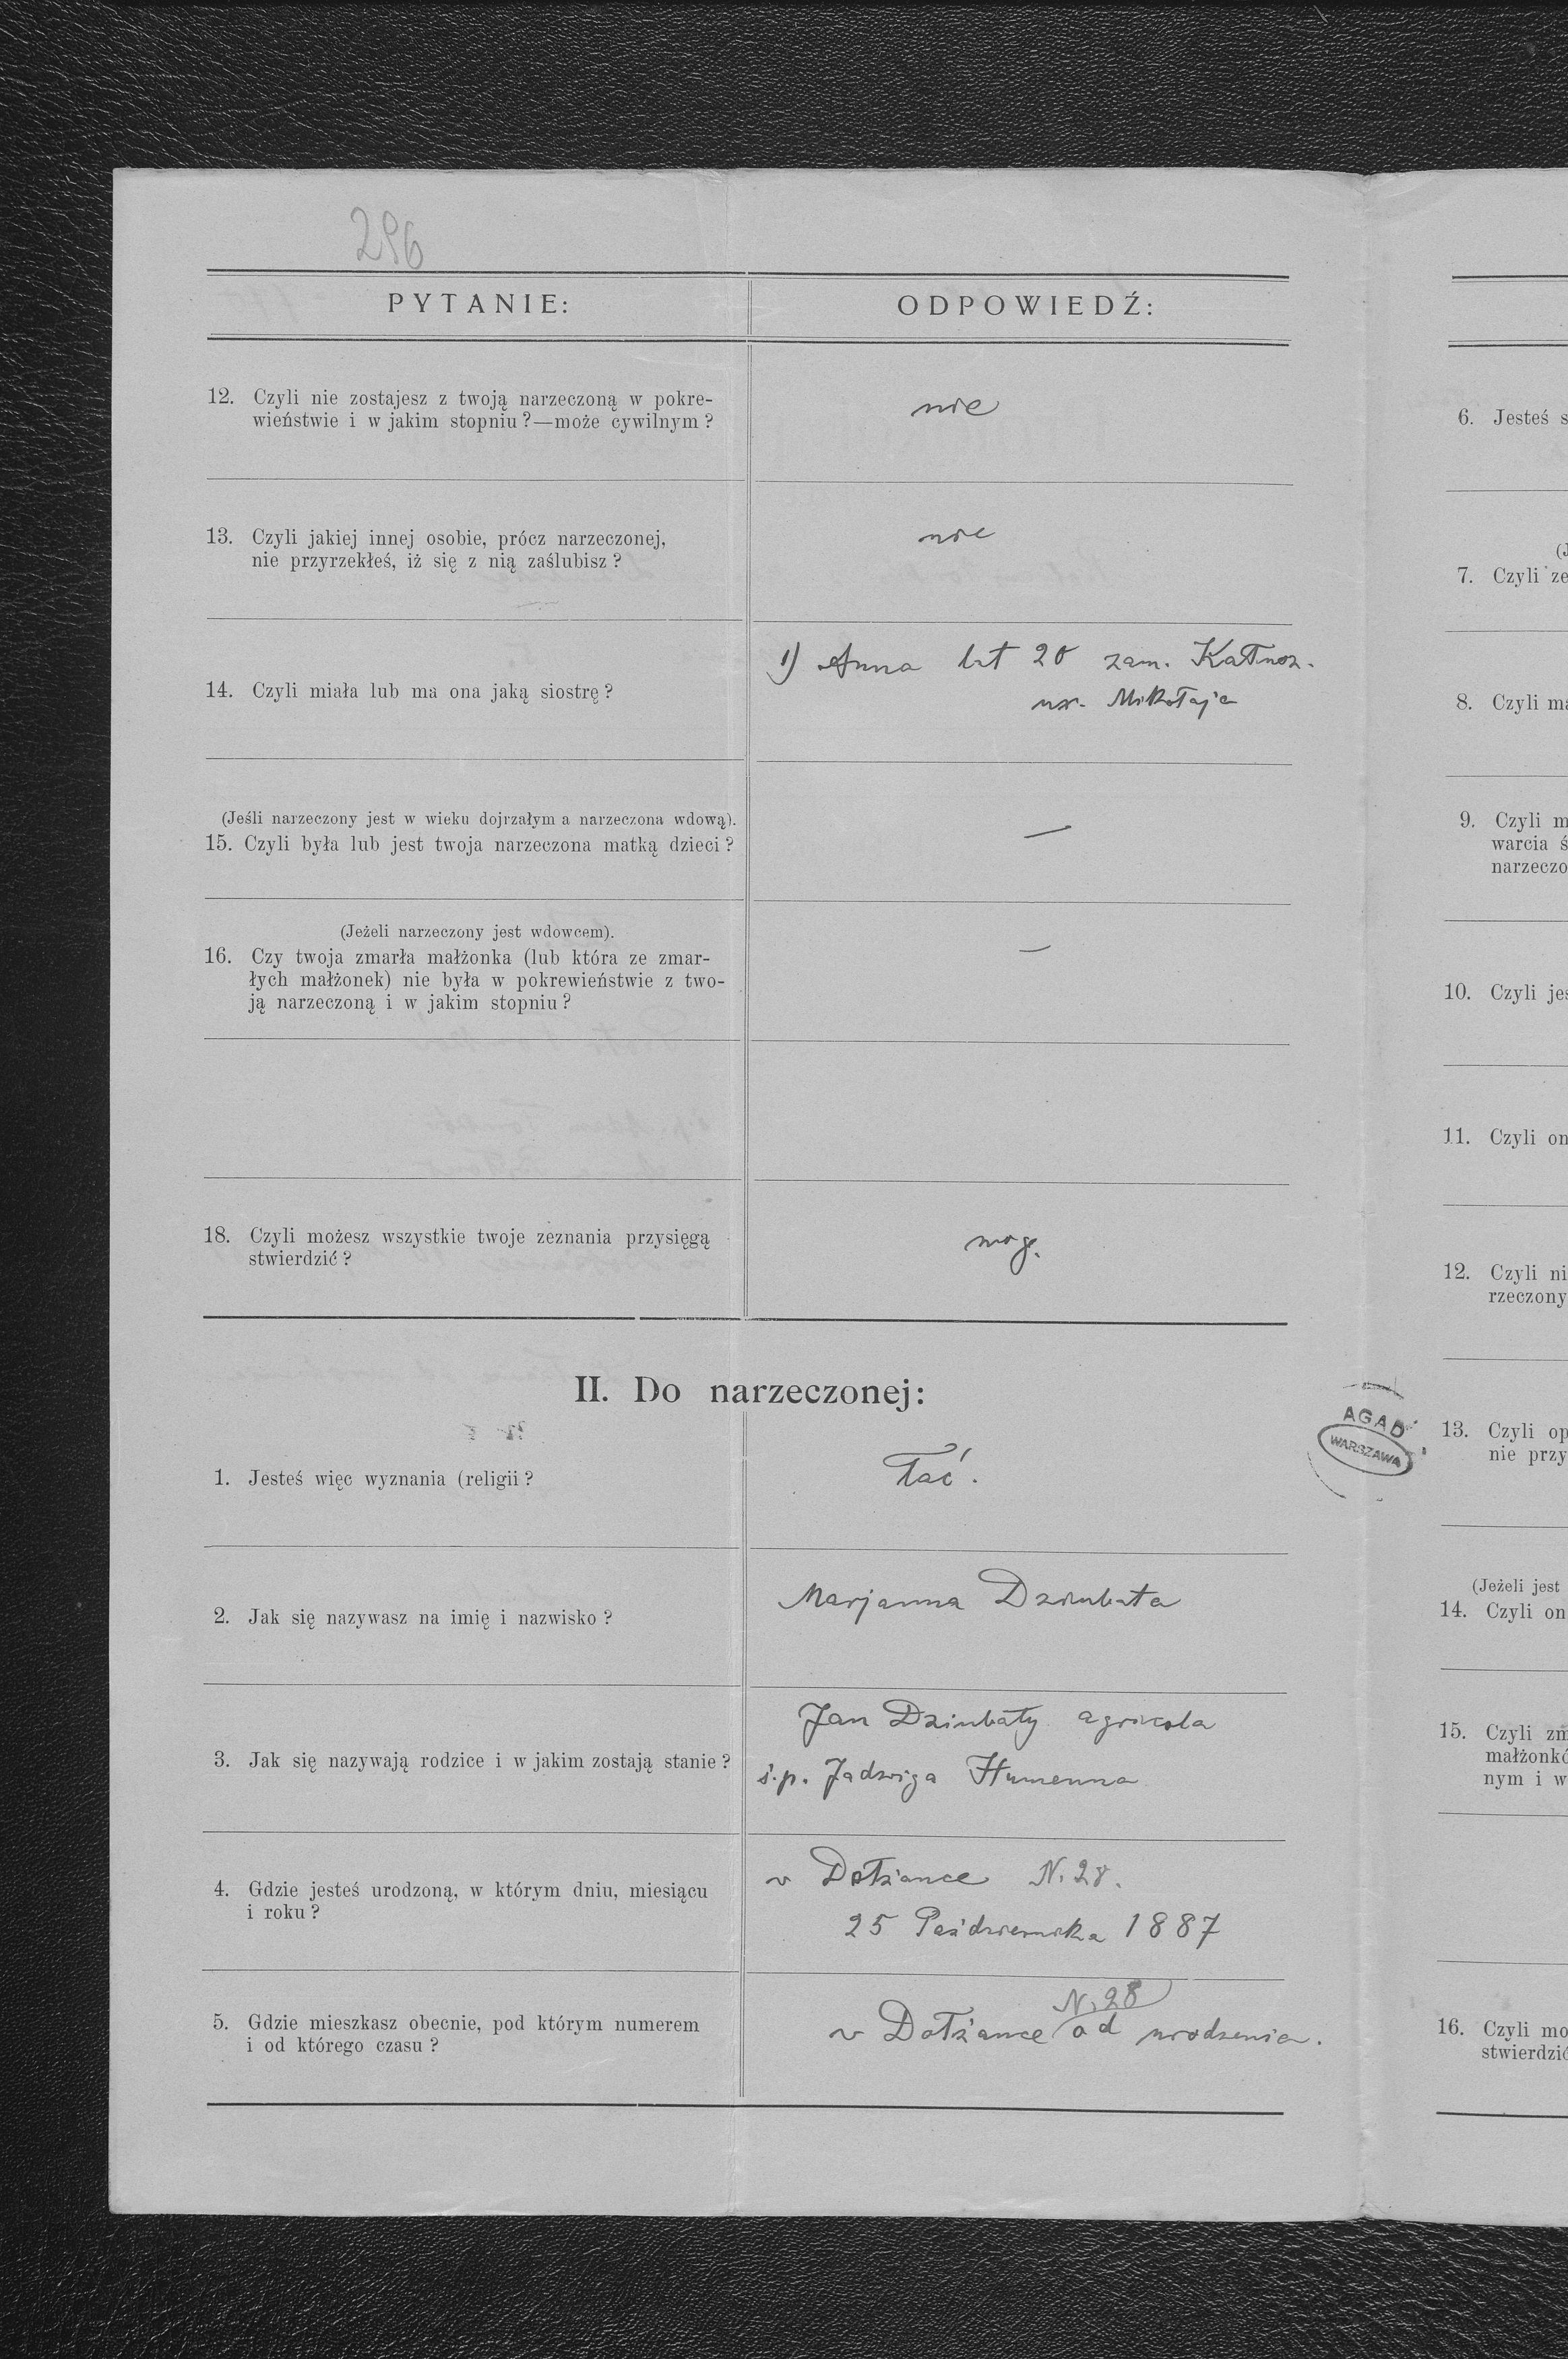 296
PYTANIE:
ODPOWIEDŹ:
12. Czyli nie zostajesz z twoją narzeczoną w pokre-
wieństwie i w jakim stopniu?—może cywilnym?
nie
13. Czyli jakiej innej osobie, prócz narzeczonej,
nie przyrzekłeś, iż się z nią zaślubisz?
nie
14. Czyli miała lub ma ona jaką siostrę?
1) Anna lat 20 zam.
Mikołaja
(Jeśli narzeczony jest w wieku dojrzałym a narzeczona wdową).
15. Czyli była lub jest twoja narzeczona matką dzieci?
—
(Jeżeli narzeczony jest wdowcem).
16. Czy twoja zmarła małżonka (lub która ze zmar-
łych małżonek) nie była w pokrewieństwie z two-
ją narzeczoną i w jakim stopniu?
—
18. Czyli możesz wszystkie twoje zeznania przysięgą
stwierdzić?
mogę.
II. Do narzeczonej:
1. Jesteś więc wyznania (religii?
łać.
2. Jak się nazywasz na imię i nazwisko?
Marjanna Dziubata
3. Jak się nazywają rodzice i w jakim zostają stanie?
Jan Dziubaty agricola
ś.p. Jadwiga Humenna
4. Gdzie jesteś urodzoną, w którym dniu, miesiącu
i roku?
w Dołżance N. 28.
25 Października 1887
5. Gdzie mieszkasz obecnie, pod którym numerem
i od którego czasu?
N. 28
w Dołżance od urodzenia.
AGAD
WARSZAWA
6. Jesteś s
(J
7. Czyli ze
8. Czyli ma
9. Czyli m
warcia ś
narzeczo
10. Czyli jes
11. Czyli on
12. Czyli ni
rzeczony
13. Czyli op
nie przy
(Jeżeli jest
14. Czyli on
15. Czyli zm
małżonkó
nym i w
16. Czyli mo
stwierdzić